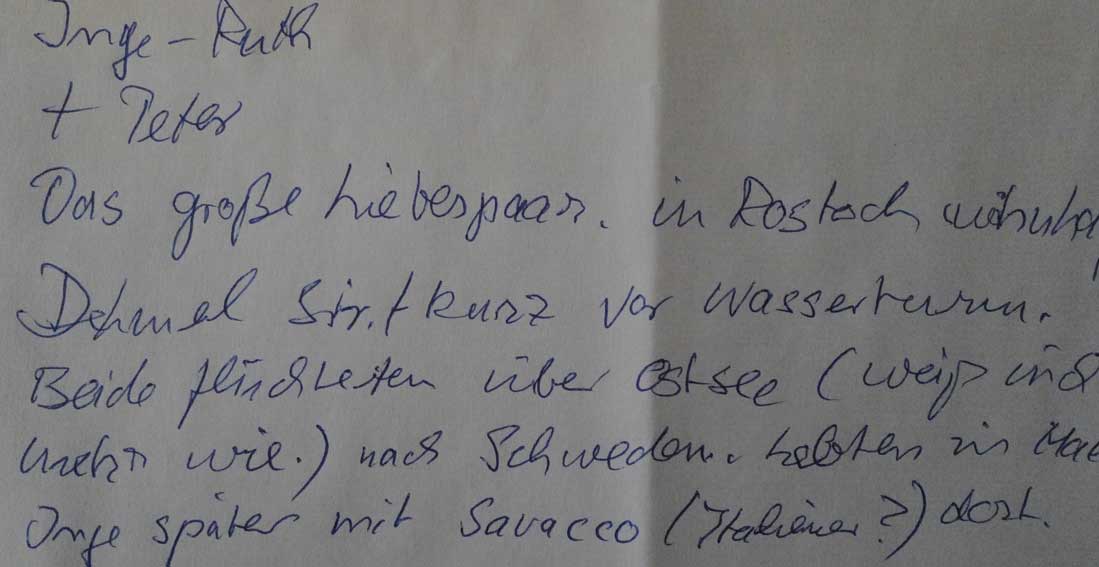 Inge-Ruth
+ Peter
Das große Liebespaar. in Rostock wohnha
Dehmel Str. kurz vor Wasserturm.
Beide flüchteten über Ostsee (weiß nich
mehr wie.) nach Schweden. Lebten in
Inge später mit Savacco (Italiener?) dort.